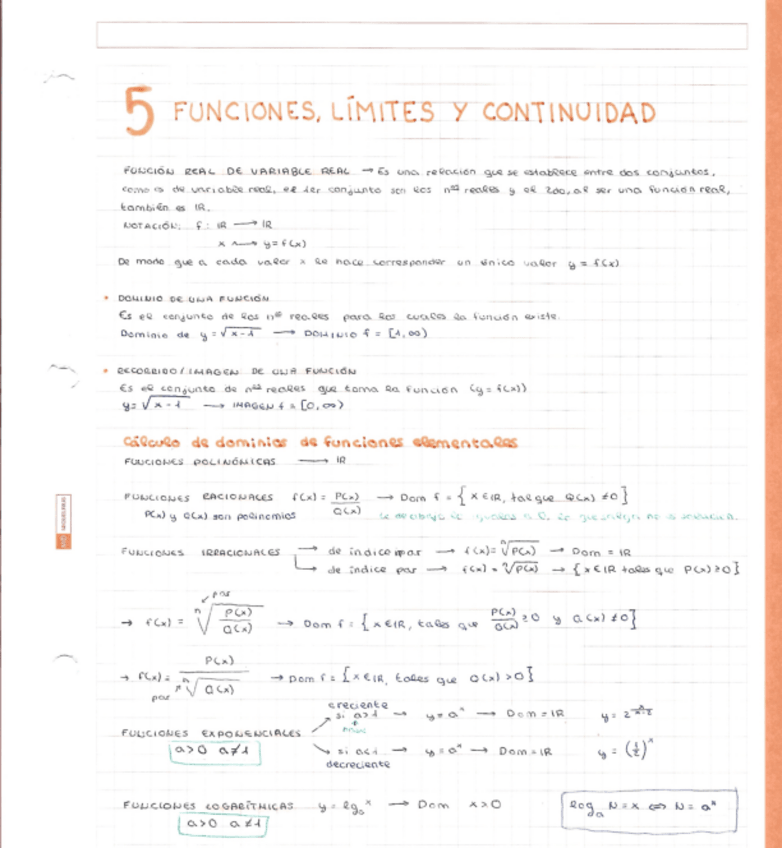 5 FUNCIONES, LÍMITES Y CONTINUIDAD
FUNCIÓN REAL DE VARIABLE REAL → Es una relación que se establece entre dos conjuntos,
como es de variable real, el 1er conjunto son los nos reales y el 2do, al ser una función real,
también es IR.
NOTACIÓN: f: IR → IR
x ⟿ y=f(x)
De modo que a cada valor x le hace corresponder un único valor y = f(x)
• DOMINIO DE UNA FUNCIÓN
Es el conjunto de los nos reales para los cuales la función existe.
Dominio de y = √(x-1) → DOMINIO f = [1,∞)
• RECORRIDO/IMAGEN DE UNA FUNCIÓN
Es el conjunto de nos reales que toma la función (y = f(x))
y = √(x-1) → IMAGEN f = [0,∞)
Cálculo de dominios de funciones elementales
FUNCIONES POLINÓMICAS → IR
FUNCIONES RACIONALES f(x) = P(x)/Q(x) → Dom f = {x ∈ IR, tal que Q(x) ≠ 0}
P(x) y Q(x) son polinomios
FUNCIONES IRRACIONALES → de índice impar → f(x) = ⁿ√P(x) → Dom = IR
→ de índice par → f(x) = ⁿ√P(x) → {x ∈ IR tales que P(x) ≥ 0}
par
→ f(x) = ⁿ√(P(x)/Q(x)) → Dom f = {x ∈ IR, tales que P(x)/Q(x) ≥ 0 y Q(x) ≠ 0}
→ f(x) = P(x)/ⁿ√Q(x) → Dom f = {x ∈ IR, tales que Q(x) > 0}
par
creciente
FUNCIONES EXPONENCIALES → si a>1 → y = aˣ → Dom = IR
→ si a<1 → y = aˣ → Dom = IR y = (1/2)ˣ
decreciente
a>0 a≠1
FUNCIONES LOGARÍTMICAS y = lgₐˣ → Dom x>0
a>0 a≠1
logₐ N = x ⇔ N = aˣ